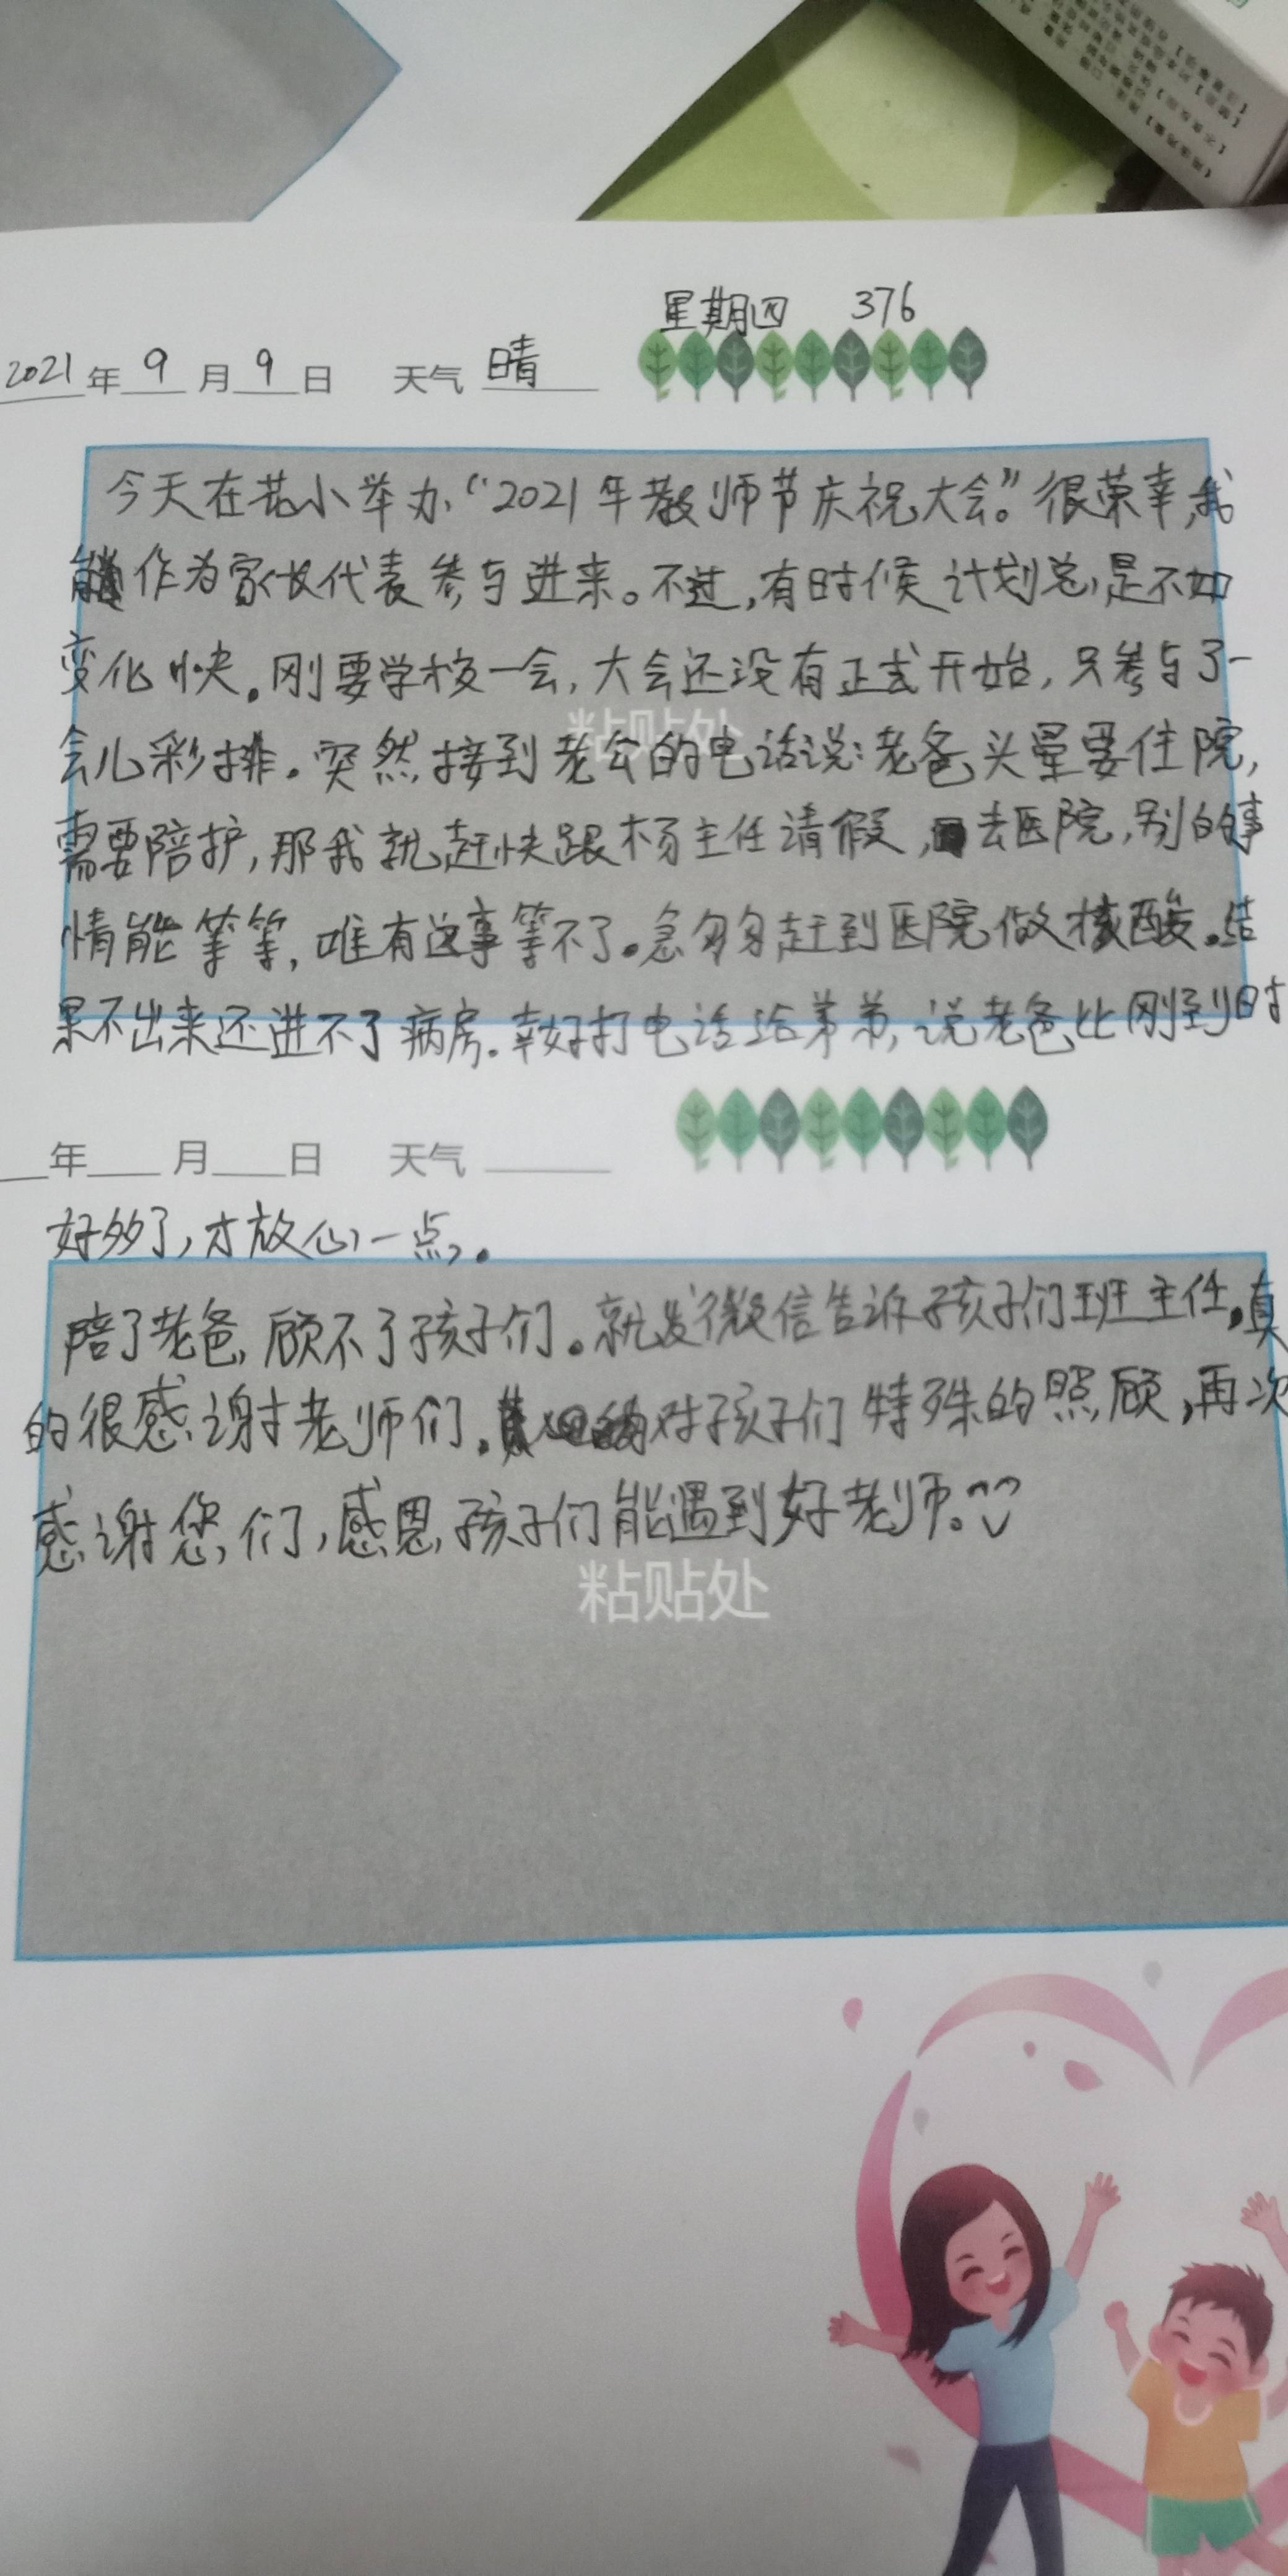 星期四 376
2021年9月9日 天气 晴
今天在花小举办“2021年教师节庆祝大会。”很荣幸,我
能作为家长代表参与进来。不过,有时候计划总是不如
变化快。刚要学校一会,大会还没有正式开始,只参与了一
粘贴处
会儿彩排。突然接到老公的电话说:老爸头晕要住院,
需要陪护,那我就赶快跟杨主任请假,去医院,别的事
情能等等,唯有这事等不了。急匆匆赶到医院做核酸。结
果不出来还进不了病房。幸好打电话给弟弟,说老爸比刚到时
年 月 日 天气
好多了,才放心一点。
陪了老爸,顾不了孩子们。就发微信告诉孩子们班主任。真
的很感谢老师们。对孩子们特殊的照顾,再次
感谢您们,感恩孩子们能遇到好老师。
粘贴处